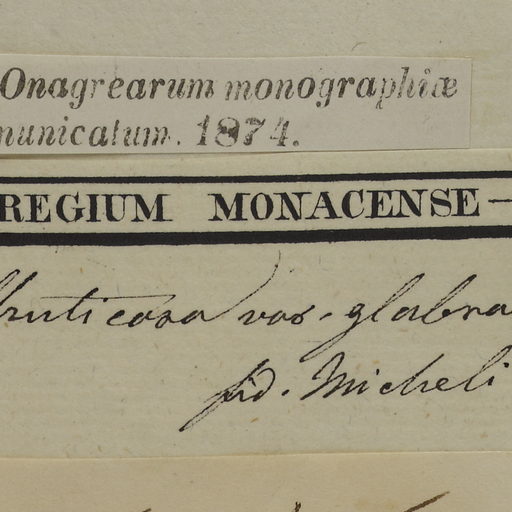 Onagrearum monographiæ
municatum. 1874.
REGIUM MONACENSE —
fruticosa var. glabra
fid. Micheli